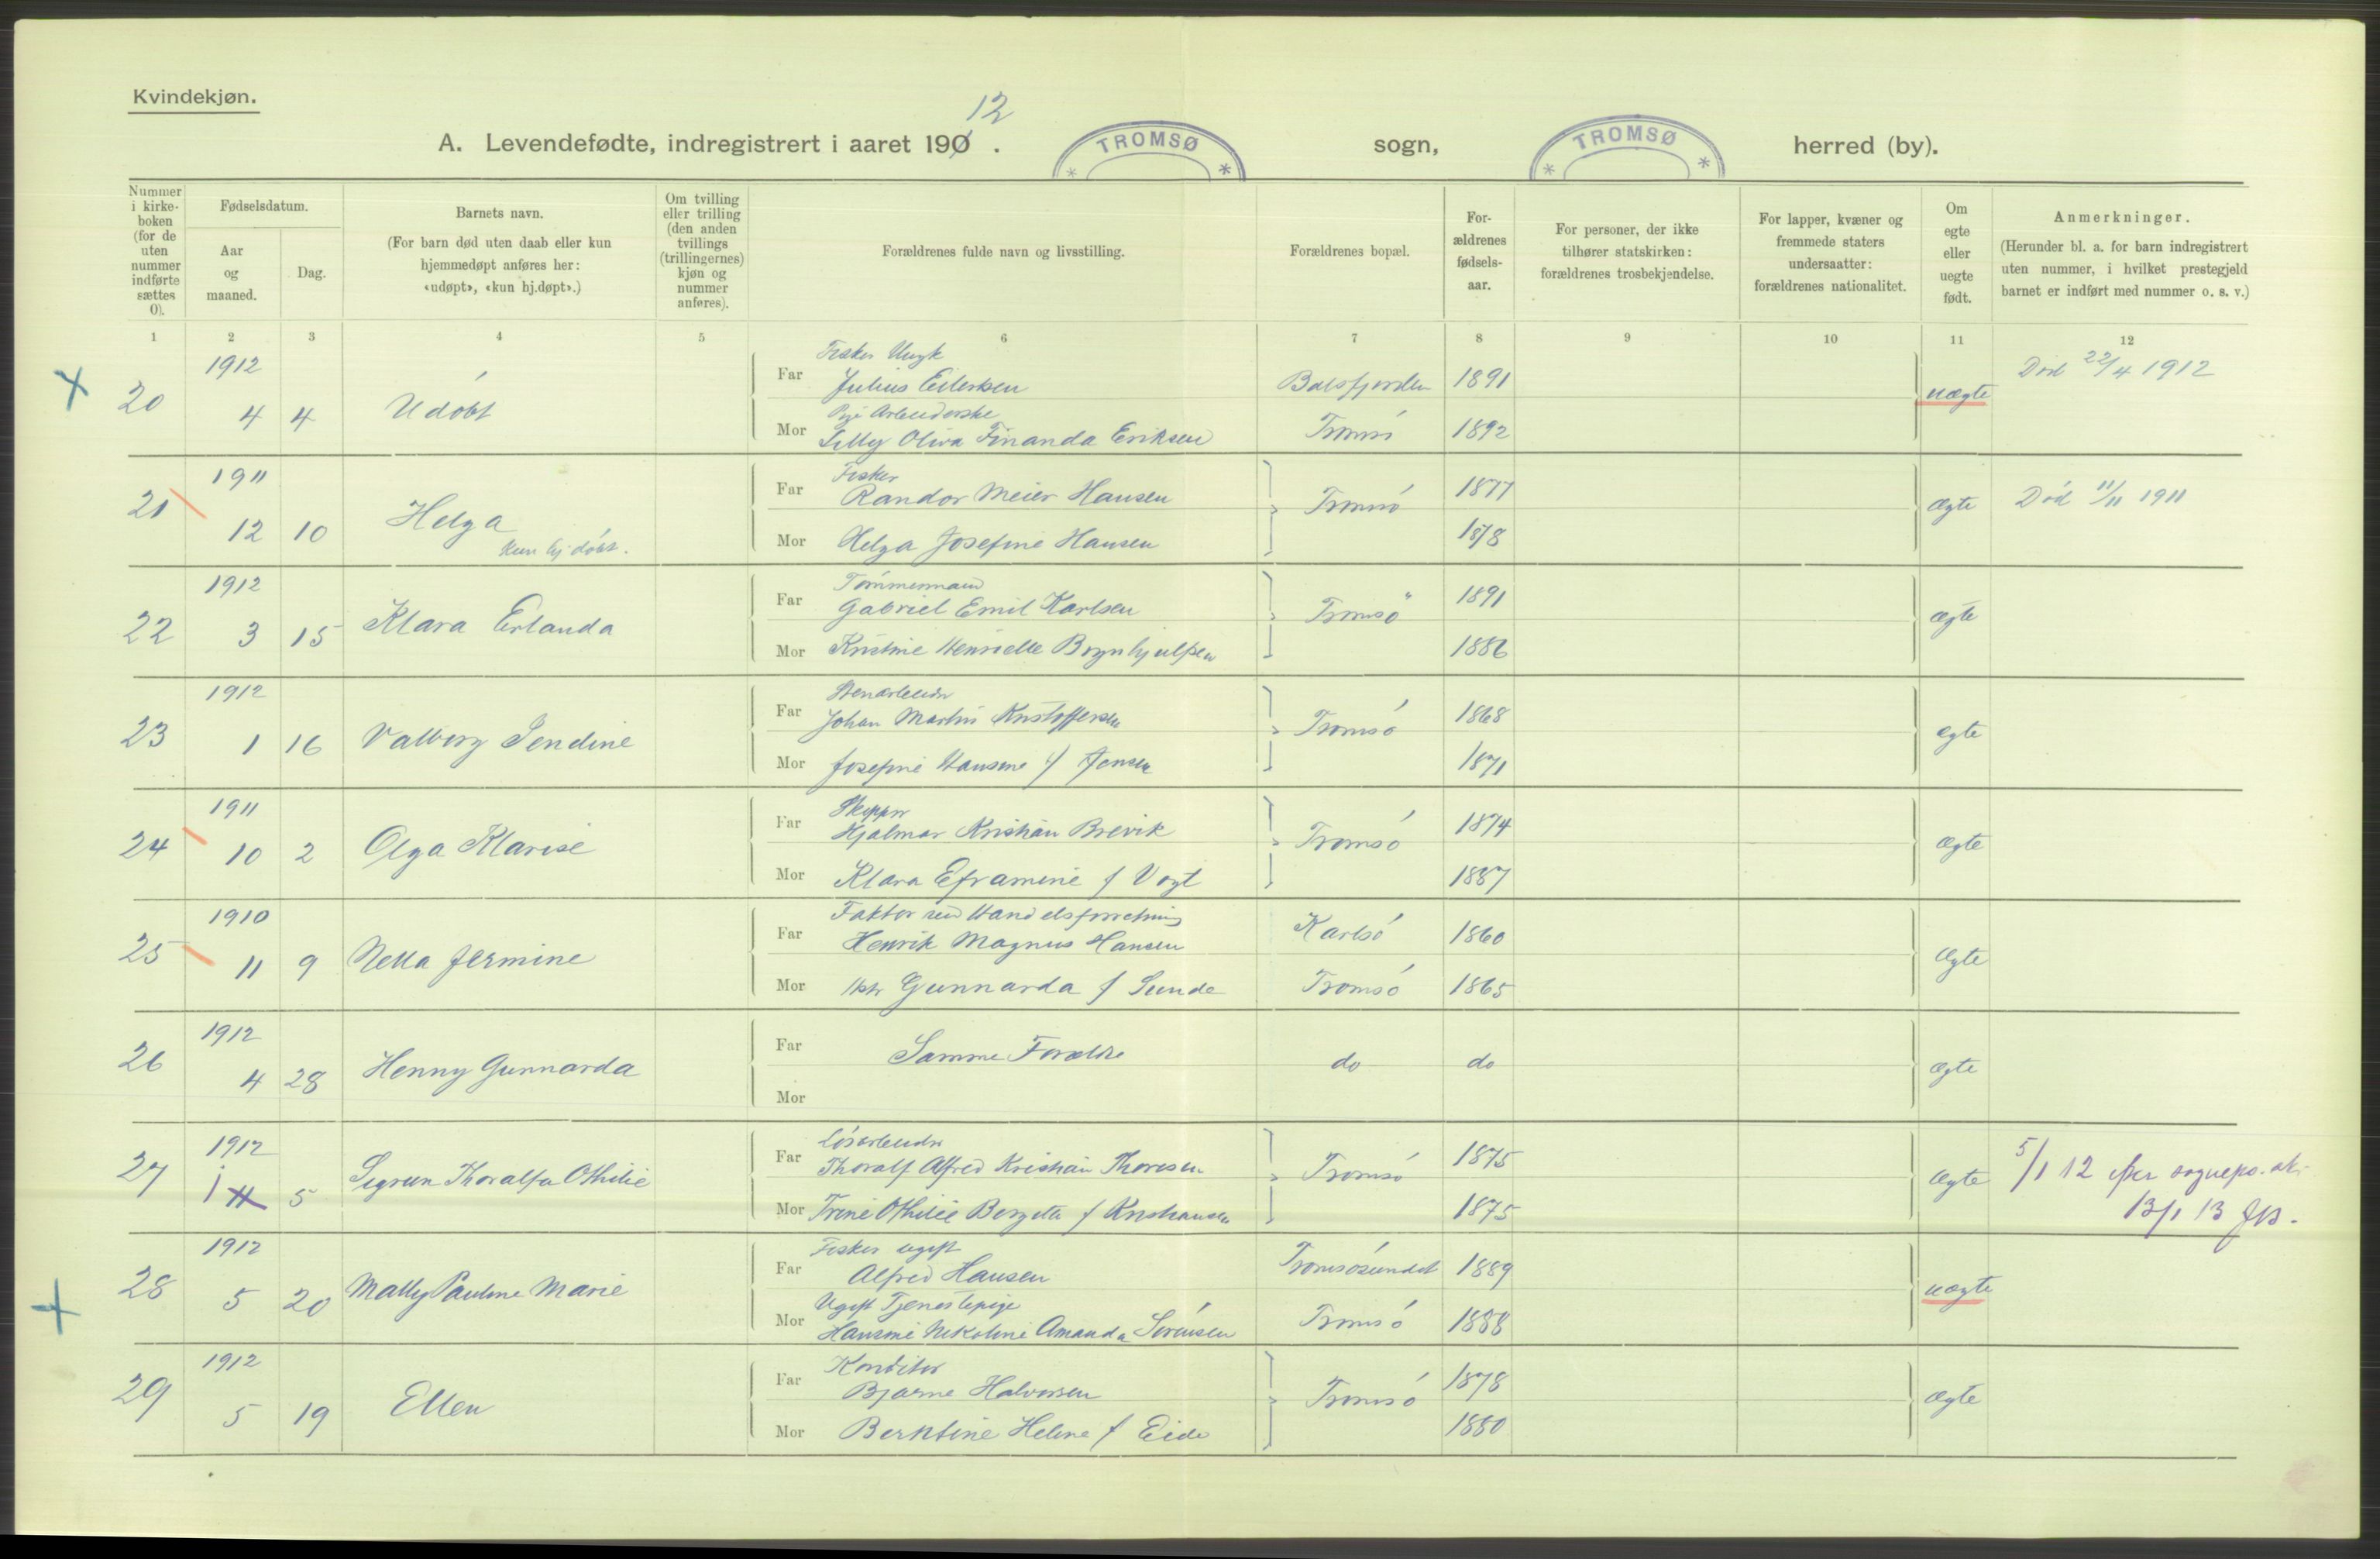 Kvindekjøn.
12
A. Levendefødte, indregistrert i aaret 190 . TROMSØ sogn, TROMSØ herred (by).
Nummer i kirke-boken (for de uten nummer indførte sættes 0).
Fødselsdatum.
Aar og maaned.
Dag.
Barnets navn.
(For barn død uten daab eller kun hjemmedøpt anføres her: «udøpt», «kun hj.døpt».)
Om tvilling eller trilling (den anden tvillings (trillingernes) kjøn og nummer anføres).
Forældrenes fulde navn og livsstilling.
Forældrenes bopæl.
For-ældrenes fødsels-aar.
For personer, der ikke tilhører statskirken: forældrenes trosbekjendelse.
For lapper, kvæner og fremmede staters undersaatter: forældrenes nationalitet.
Om egte eller uegte født.
Anmerkninger.
(Herunder bl. a. for barn indregistrert uten nummer, i hvilket prestegjeld barnet er indført med nummer o. s. v.)
1 2 3 4 5 6 7 8 9 10 11 12
20 1912 4 4 Udøbt
Far Fisker Julius Eilertsen Balsfjorden 1891 uægte Død 22/4 1912
Mor Pige Arbeiderske Lilly Oliva Finanda Eriksen Tromsø 1892
21 1911 12 10 Helga kun hj. døbt.
Far Fisker Randor Meier Hansen Tromsø 1877 ægte Død 11/11 1911
Mor Helga Josefine Hansen 1878
22 1912 3 15 Klara Erlanda
Far Tømmermand Gabriel Emil Karlsen Tromsø 1891 ægte
Mor Kristine Henriette 1886
23 1912 1 16 Valborg Jendine
Far Stenarbeider Johan Martin Kristoffersen Tromsø 1868 egte
Mor Josefine Hansine f Jensen 1871
24 1911 10 2 Olga Klarise
Far Skipper Hjalmar Kristian Brevik Tromsø 1874 ægte
Mor Klara Eframine f Vogt 1887
25 1910 11 9 Nella Jermine
Far Faktor ved Handelsforretning Henrik Magnus Hansen Karlsø 1860 ægte
Mor Gunnarda f Sunde Tromsø 1865
26 1912 4 28 Henny Gunnarda
Far Samme Forældre do do ægte
Mor
27 1912 1 5 Sigrun Thoralfa Othilie
Far Løsarbeider Thoralf Alfred Kristian Thoresen Tromsø 1875 ægte 5/1 12
Mor Trine Othilie Bergetta f Kristiansen 1875 13/1 13
28 1912 5 20 Mally Pauline Marie
Far Fisker ugift Alfred Hansen Tromsøsundet 1889 uægte
Mor Ugift Tjenestepige Hansine Nikoline Amanda Sørensen Tromsø 1888
29 1912 5 19 Ellen
Far Konditor Bjarne Halvorsen Tromsø 1878 ægte
Mor Berntine Helene f Eide 1880